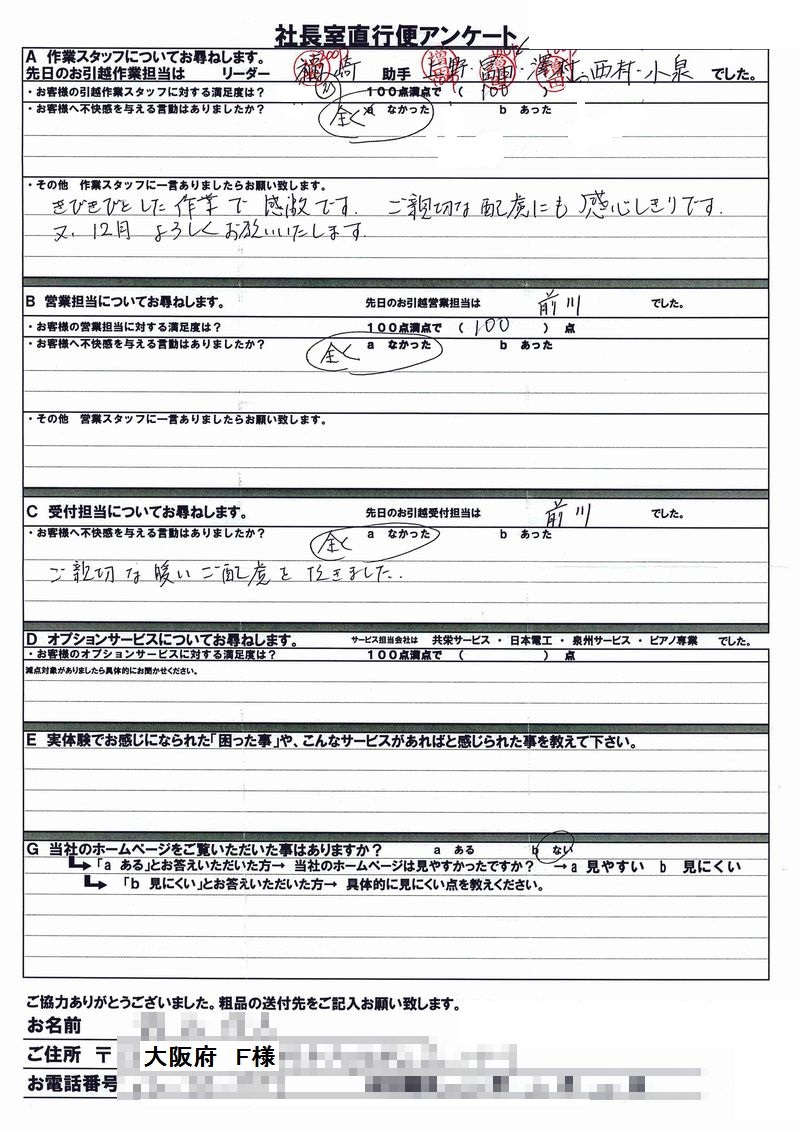 社長室直行便アンケート
A 作業スタッフについてお尋ねします。
先日のお引越作業担当は リーダー 福崎 助手 上野・冨田・澤村、西村・小泉 でした。
・お客様の引越作業スタッフに対する満足度は? 100点満点で ( 100 )
・お客様へ不快感を与える言動はありましたか? 全く a なかった b あった
・その他 作業スタッフに一言ありましたらお願い致します。
きびきびとした作業で感激です. ご親切な配慮にも感心しきりです.
又、12月 よろしくお願いいたします.
B 営業担当についてお尋ねします。 先日のお引越営業担当は 前川 でした。
・お客様の営業担当に対する満足度は? 100点満点で ( 100 ) 点
・お客様へ不快感を与える言動はありましたか? 全く a なかった b あった
・その他 営業スタッフに一言ありましたらお願い致します。
C 受付担当についてお尋ねします。 先日のお引越受付担当は 前川 でした。
・お客様へ不快感を与える言動はありましたか? 全く a なかった b あった
ご親切な暖いご配慮を頂きました.
D オプションサービスについてお尋ねします。 サービス担当会社は 共栄サービス ・ 日本電工 ・ 泉州サービス ・ ピアノ専業 でした。
・お客様のオプションサービスに対する満足度は? 100点満点で ( ) 点
減点対象がありましたら具体的にお聞かせください。
E 実体験でお感じになられた「困った事」や、こんなサービスがあればと感じられた事を教えて下さい。
G 当社のホームページをご覧いただいた事はありますか? a ある b ない
「a ある」とお答えいただいた方→ 当社のホームページは見やすかったですか? →a 見やすい b 見にくい
「b 見にくい」とお答えいただいた方→ 具体的に見にくい点を教えください。
ご協力ありがとうございました。粗品の送付先をご記入お願い致します。
お名前
ご住所 〒 大阪府 F様
お電話番号